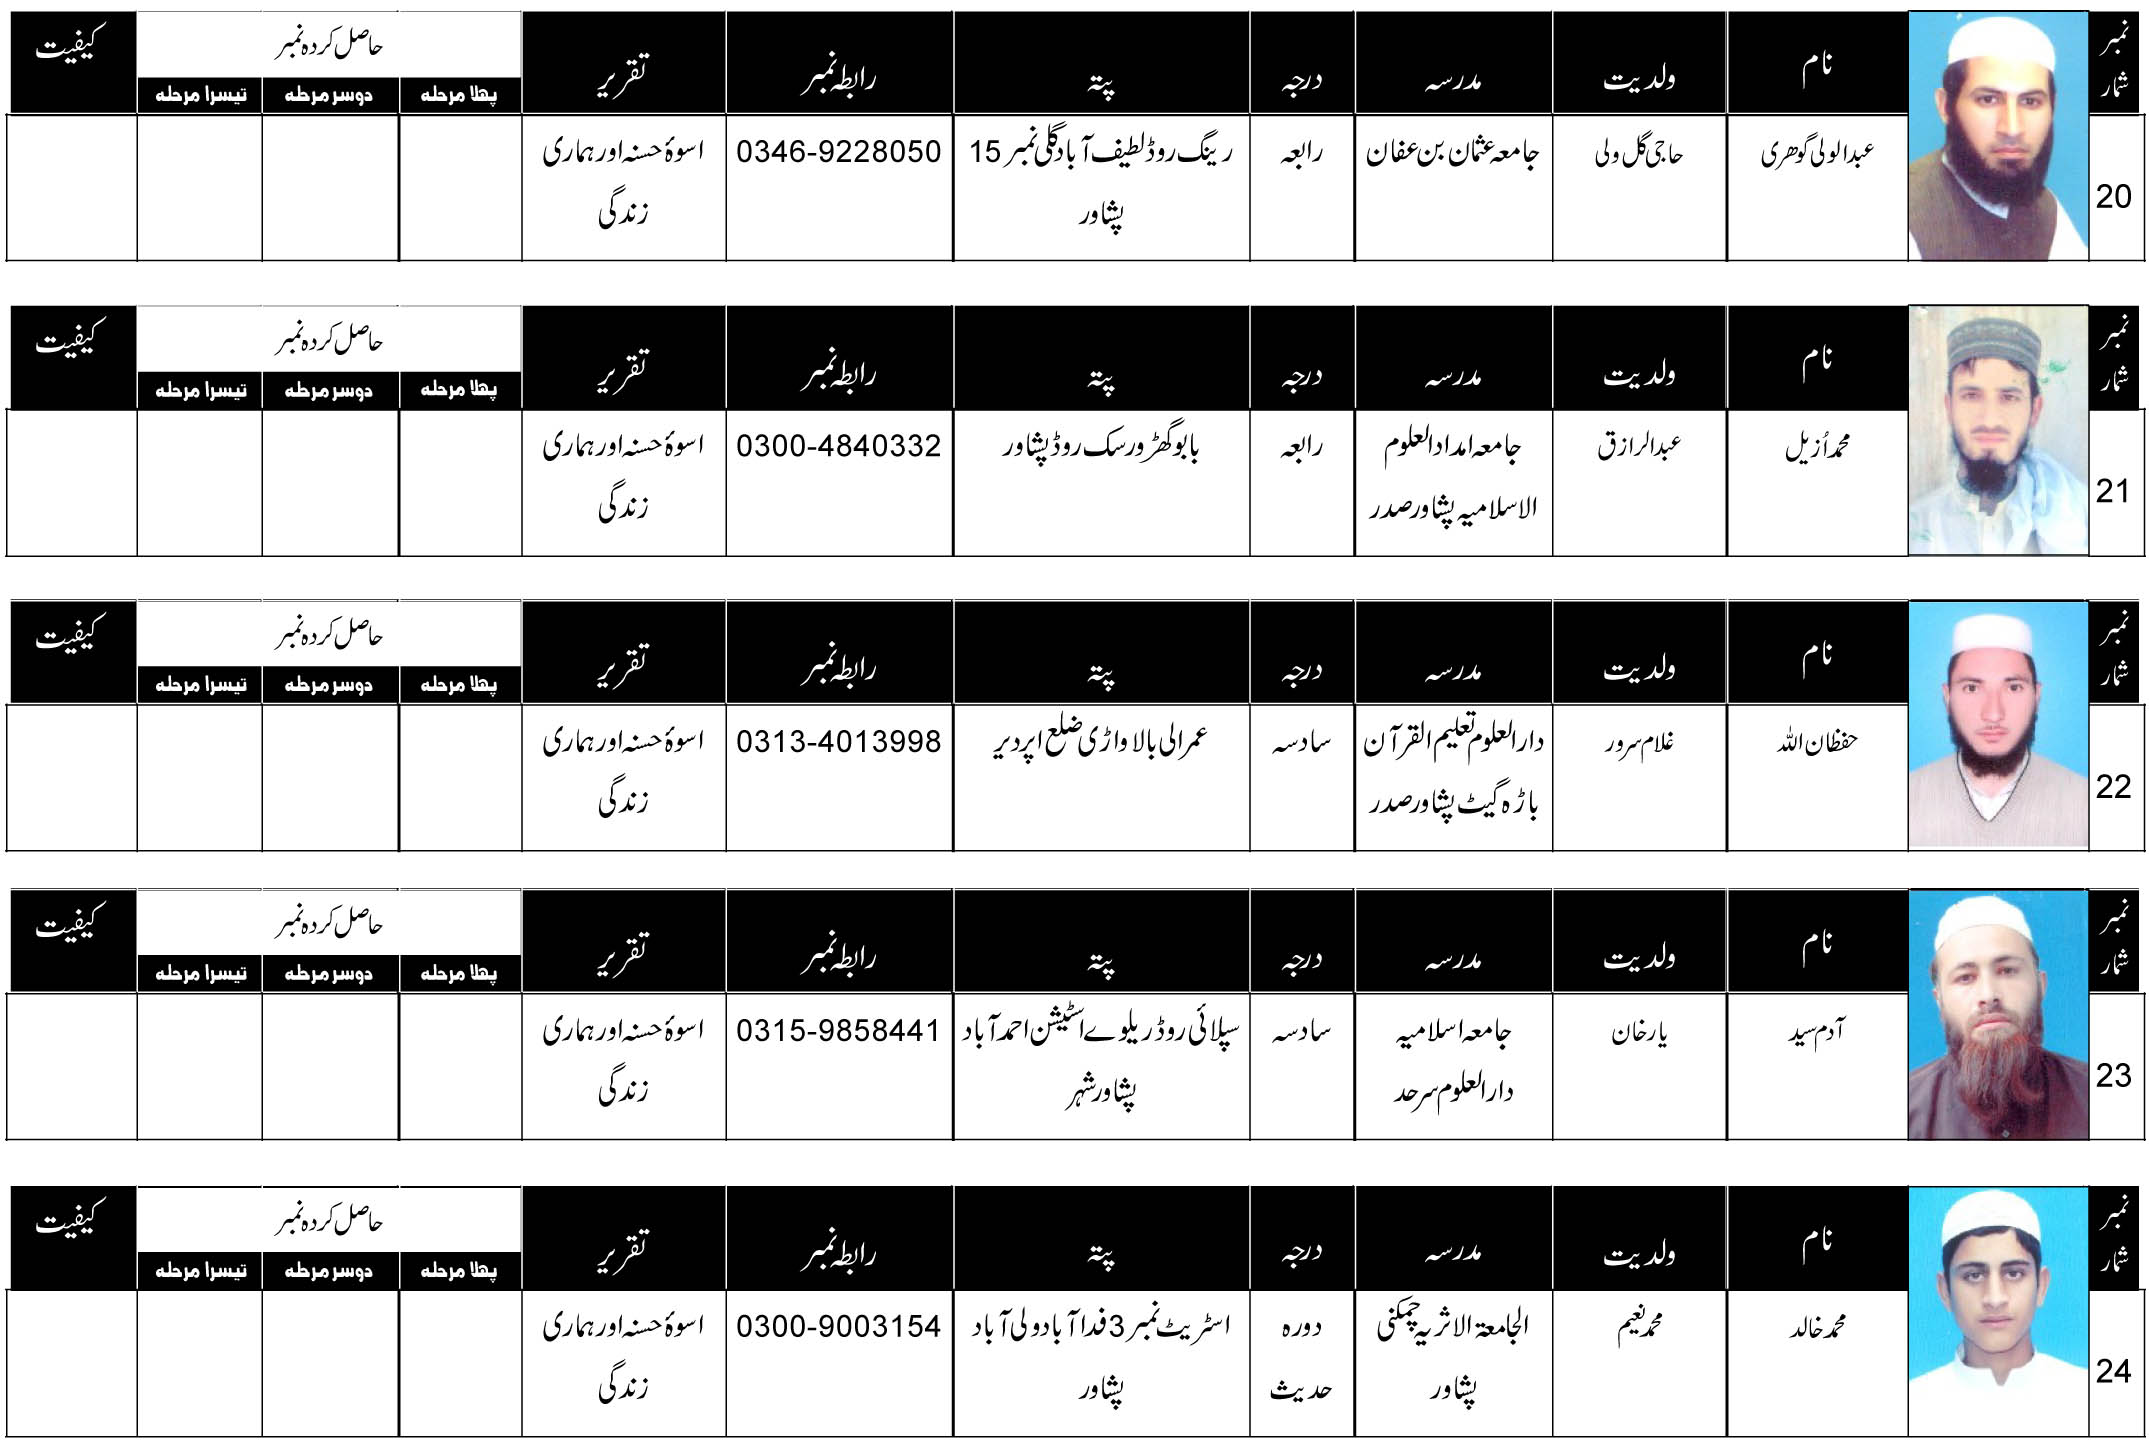 نمبر شمار
نام
ولدیت
مدرسہ
درجہ
پتہ
رابطہ نمبر
تقریر
حاصل کردہ نمبر
پہلا مرحلہ
دوسر مرحلہ
تیسرا مرحلہ
کیفیت
20
عبدالولی گوھری
حاجی گل ولی
جامعہ عثمان بن عفان
رابعہ
رینگ روڈ لطیف آباد گلی نمبر 15
پشاور
0346-9228050
اسوۂ حسنہ اور ہماری
زندگی
نمبر شمار
نام
ولدیت
مدرسہ
درجہ
پتہ
رابطہ نمبر
تقریر
حاصل کردہ نمبر
پہلا مرحلہ
دوسر مرحلہ
تیسرا مرحلہ
کیفیت
21
محمد اُزیل
عبدالرازق
جامعہ امداد العلوم
الاسلامیہ پشاور صدر
رابعہ
بابو گھڑ ورسک روڈ پشاور
0300-4840332
اسوۂ حسنہ اور ہماری
زندگی
نمبر شمار
نام
ولدیت
مدرسہ
درجہ
پتہ
رابطہ نمبر
تقریر
حاصل کردہ نمبر
پہلا مرحلہ
دوسر مرحلہ
تیسرا مرحلہ
کیفیت
22
حفظان اللہ
غلام سرور
دارالعلوم تعلیم القرآن
باڑہ گیٹ پشاور صدر
سادسہ
عمرالی بالا واڑی ضلع اپر دیر
0313-4013998
اسوۂ حسنہ اور ہماری
زندگی
نمبر شمار
نام
ولدیت
مدرسہ
درجہ
پتہ
رابطہ نمبر
تقریر
حاصل کردہ نمبر
پہلا مرحلہ
دوسر مرحلہ
تیسرا مرحلہ
کیفیت
23
آدم سید
یار خان
جامعہ اسلامیہ
دارالعلوم سرحد
سادسہ
سپلائی روڈ ریلوے اسٹیشن احمد آباد
پشاور شہر
0315-9858441
اسوۂ حسنہ اور ہماری
زندگی
نمبر شمار
نام
ولدیت
مدرسہ
درجہ
پتہ
رابطہ نمبر
تقریر
حاصل کردہ نمبر
پہلا مرحلہ
دوسر مرحلہ
تیسرا مرحلہ
کیفیت
24
محمد خالد
محمد نعیم
الجامعۃ الاثریہ چمکنی
پشاور
دورہ
حدیث
اسٹریٹ نمبر 3 فدا آباد ولی آباد
پشاور
0300-9003154
اسوۂ حسنہ اور ہماری
زندگی